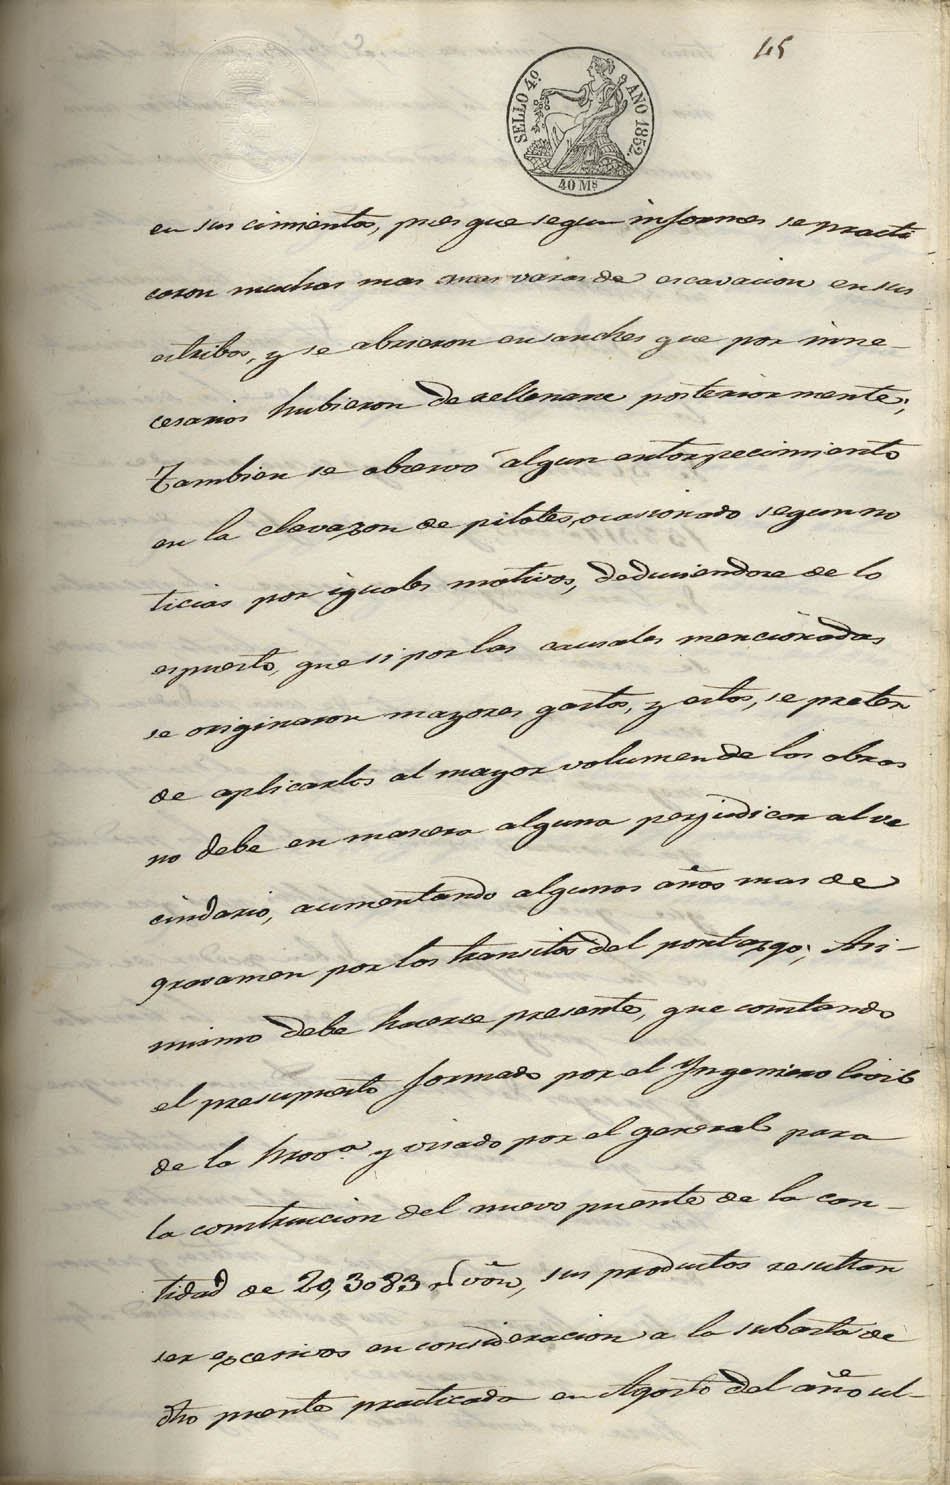 45
SELLO 4º. AÑO 1852.
40 Ms
en sus cimientos, pues que segun informes se practi
caron muchas mas varas de escavacion en sus
estribos, y se abrieron ensanches que por inne-
cesarios hubieron de rellenarse posteriormente;
Tambien se observo algun entorpecimiento
en la clavazon de pilotes, ocasionado segun no
ticias por iguales motivos, deduciendose de lo
espuesto, que si por las causales mencionadas
se originaron mayores gastos, y estos, se preten
de aplicarlos al mayor volumen de las obras
no debe en manera alguna perjudicar al ve
cindario, aumentando algunos años mas de
gravamen por los transitos del portazgo; Asi-
mismo debe hacerse presente, que constando
el presupuesto formado por el Yngeniero Civil
de la Prova. y visado por el general para
la construccion del nuevo puente de la can-
tidad de 20,3083 r von, sus productos resultan
ser excesivos en consideracion a la subasta de
dho puente practicada en Agosto del año ul-